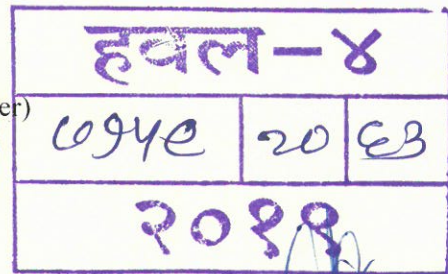 हवल-४
er)
७१५९ २० ६३
२०११